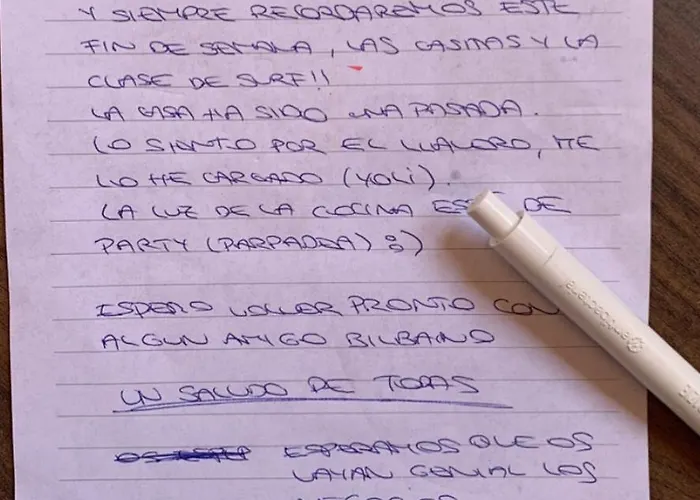 Y SIEMPRE RECORDAREMOS ESTE
FIN DE SEMANA, LAS CASITAS Y LA
CLASE DE SURF!!
LA CASA HA SIDO UNA PASADA.
LO SIENTO POR EL LLAVERO, ME
LO HE CARGADO (YOLI).
LA LUZ DE LA COCINA ESTÁ DE
PARTY (PARPADEA) :)
ESPERO VOLVER PRONTO CON
ALGUN AMIGO BILBAINO
UN SALUDO DE TODAS
ESPERAMOS QUE OS
VAYAN GENIAL LOS